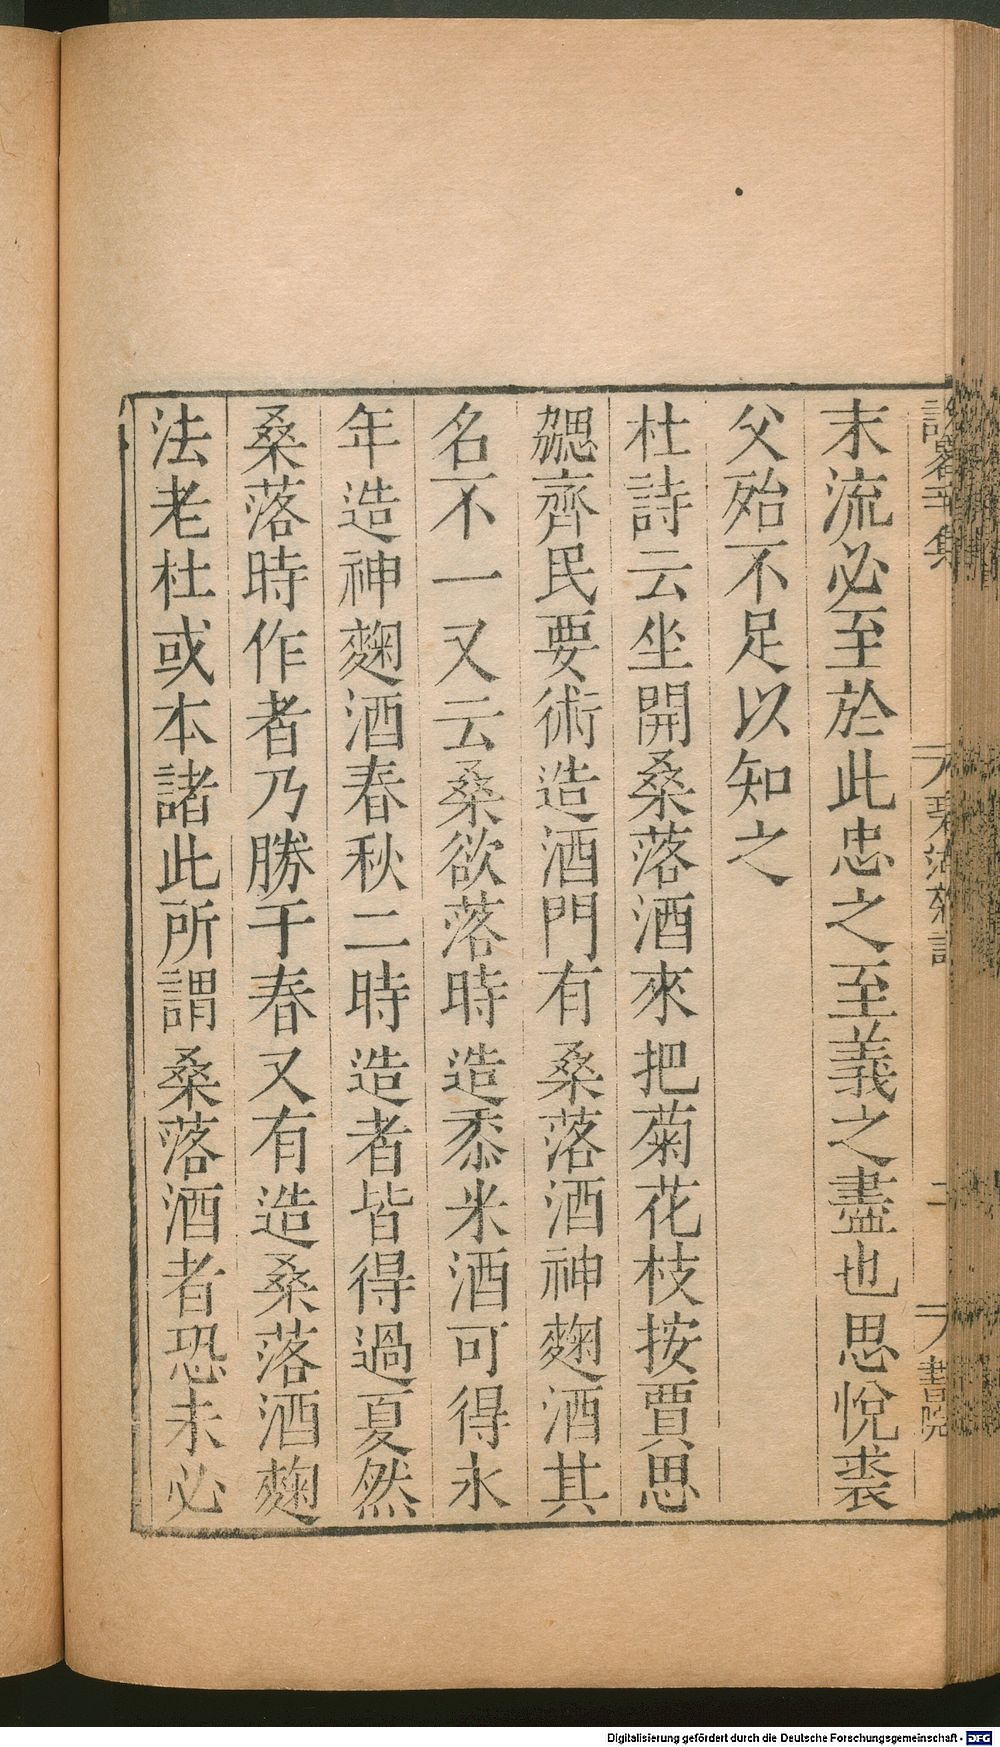 末流必至於此忠之至義之盡也思悅裘
父殆不足以知之
杜詩云坐開桑落酒來把菊花枝按賈思
勰齊民要術造酒門有桑落酒神麴酒其
名不一又云桑欲落時造黍米酒可得永
年造神麴酒春秋二時造者皆得過夏然
桑落時作者乃勝于春又有造桑落酒麴
法老杜或本諸此所謂桑落酒者恐未必
二
書院
Digitalisierung gefördert durch die Deutsche Forschungsgemeinschaft - DFG